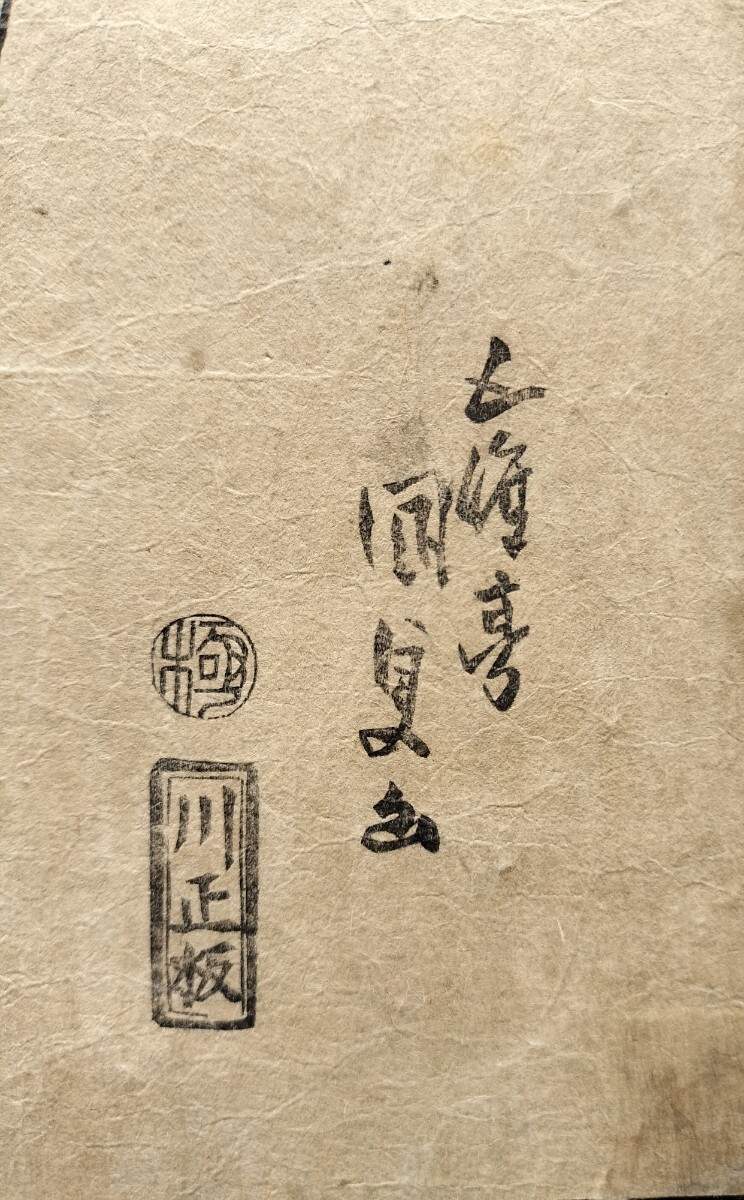 五渡亭
國貞画
極
川正板